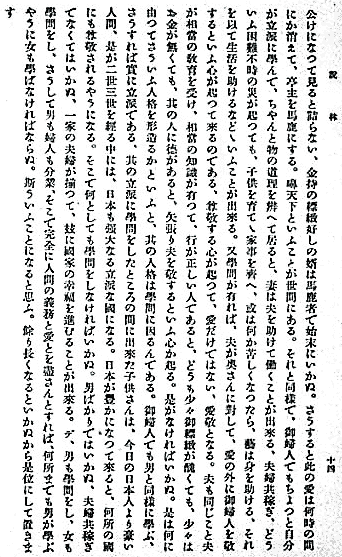 說林
十四
公けになつて見ると詰らない、金持の標緻好しの婿は馬鹿者で始末にいかぬ。さうすると此の愛は何時の間
にか消えて、亭主を馬鹿にする。嚊天下といふことが世間にある。それと同樣で、御婦人でもちよつと自分
が立派に學んで、ちやんと物の道理を辨へて居ると、妻は夫を助けて働くことが出來る、夫婦共稼ぎ、どう
いふ困難不時の災が起つても、子供を育て家事を齊へ、或は何か苦しくなつたら、藝は身を助ける、それ
を以て生活を助けるなどいふことが出來る。又學問が有れば、夫が奧さんに對して、愛の外に御婦人を敬
するといふ心が起つて來るのである、尊敬する心が起つて、愛だけではない、愛敬となる。夫も同じこと夫
が相當の敎育を受け、相當の知識が有つて、行が正しい人であると、どうも少々御標緻が醜くても、少々は
お金が無くても、其の人に德があると、矢張り夫を敬するといふ心か起る。是がなければいかぬ。是は何に
由つてさういふ人格を形造るかといふと、其の人格は學問に因るんである。御婦人でも男と同樣に學ぶ、
さうすれば實に立派である、其の立派に學問をしたところの間に出來た子供さんは、今日の日本人より豪い
人間、是が二世三世を經る中には、日本も强大なる立派な國になる。日本が豐かになつて來ると、何所の國
にも尊敬されるやうになる。そこで何としても學問をしなければいかぬ。男ばかりではいかぬ、夫婦共稼ぎ
でなくてはいかぬ、一家の夫婦が揃つて、玆に國家の幸福を進むることが出來る。デ、男も學問をし、女も
學問をし、さうして男も婦人も分業、そこで完全に人間の義務と愛とを盡さんとすれば、何所までも男が學ぶ
やうに女も學ばなければならぬ。斯ういふことになると思ふ。餘り長くなるといかぬから是位にして置きま
す